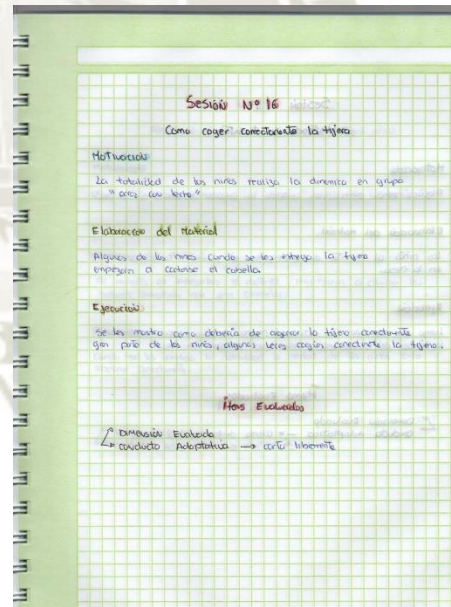 Sesión Nº 16
Como coger correctamente la tijera
Motivacion
La totalidad de los niños realiza la dinamica en grupo
"arroz con leche"
Elaboracion del Material
Algunos de los niños cuando se les entrego la tijera
empezaron a cortarse el cabello
Ejecución
Se les mostro como deberia de agarrar la tijera correctamente
gran parte de los niños, algunas veces cogian correctamente la tijera.
Items Evaluados
Dimensión Evaluada
conducta Adaptativa → corta libremente